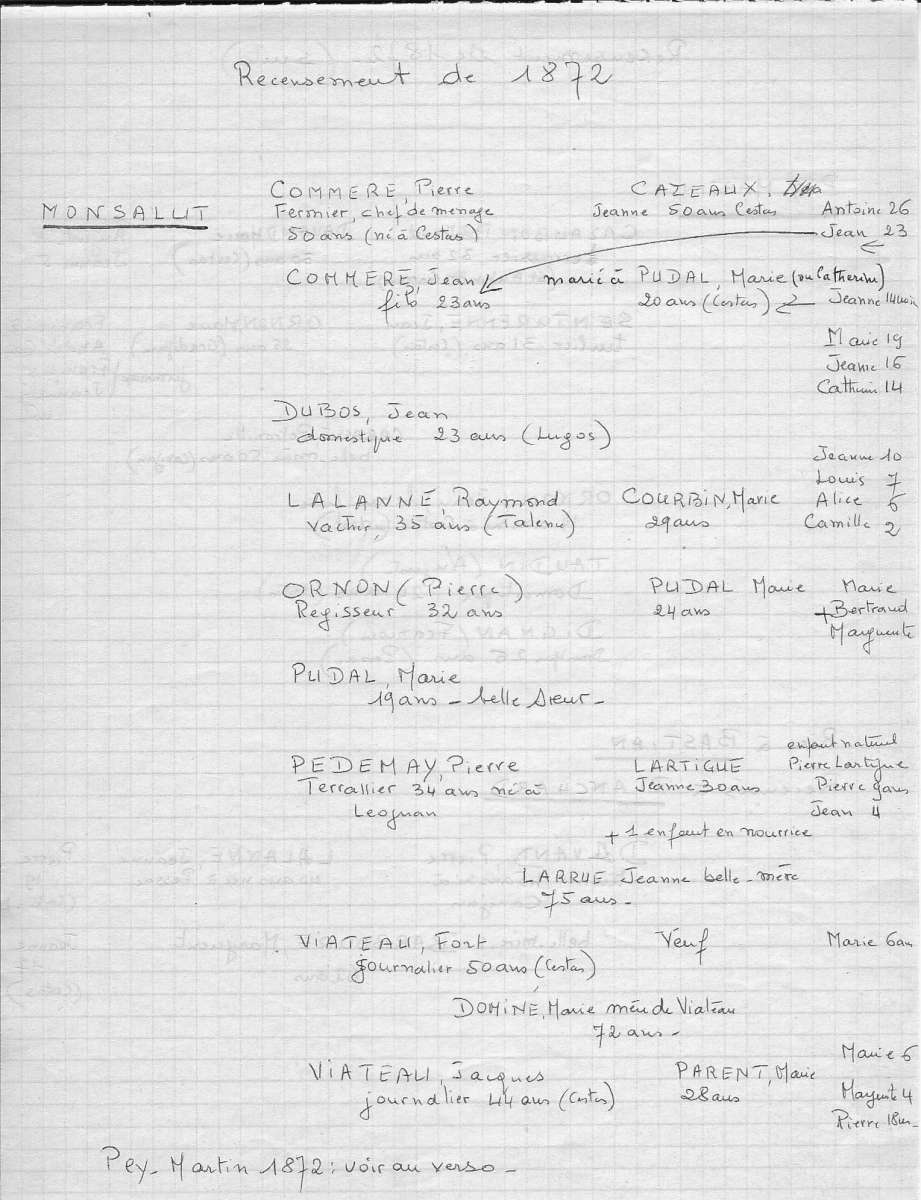 Recensement de 1872
MONSALUT
COMMERE, Pierre
Fermier, chef de menage
50 ans (né à Cestas)
CAZEAUX.
Jeanne 50 ans Cestas
Antoine 26
Jean 23
COMMERE, Jean
fils 23 ans
marié à PUDAL, Marie (ou Catherine)
20 ans (Cestas)
Jeanne 14 mois
Marie 19
Jeanne 16
Catherine 14
DUBOS, Jean
domestique 23 ans (Lugos)
LALANNE, Raymond
vacher, 35 ans (Talence)
COURBIN, Marie
29 ans
Jeanne 10
Louis 7
Alice 5
Camille 2
ORNON (Pierre)
Regisseur 32 ans
PUDAL Marie
24 ans
Marie
+ Bertrand
Marguerite
PUDAL, Marie
19 ans - belle sœur -
PEDEMAY, Pierre
Terrallier 34 ans né à
Leognan
LARTIGUE
Jeanne 30 ans
enfant naturel
Pierre Lartigue
Pierre 9 ans
Jean 4
+ 1 enfant en nourrice
LARRUE Jeanne belle-mère
75 ans -
VIATEAU, Fort
journalier 50 ans (Cestas)
Veuf
Marie 6 ans
DOMINE, Marie mère de Viateau
72 ans -
VIATEAU, Jacques
journalier 44 ans (Cestas)
PARENT, Marie
28 ans
Marie 6
Marguerite 4
Pierre 18 m -
Pey-Martin 1872 : voir au verso -